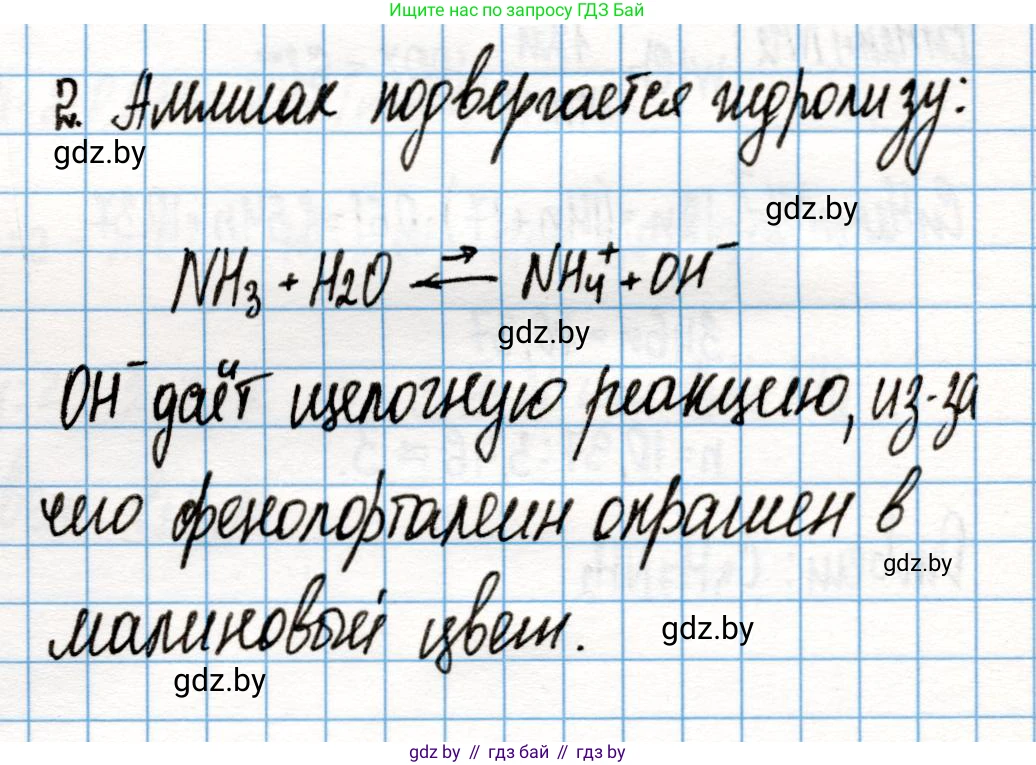 Ищите нас по запросу ГДЗ Бай
2. Аммиак подвергается гидролизу:
gdz.by
gdz.by
NH₃ + H₂O ⇄ NH₄⁺ + OH⁻
gdz.by
OH⁻ даёт щелочную реакцию, из-за
чего фенолорталеин окрашен в
gdz.by
малиновый цвет.
gdz.by
gdz.by
gdz.by // гдз бай // гдз by